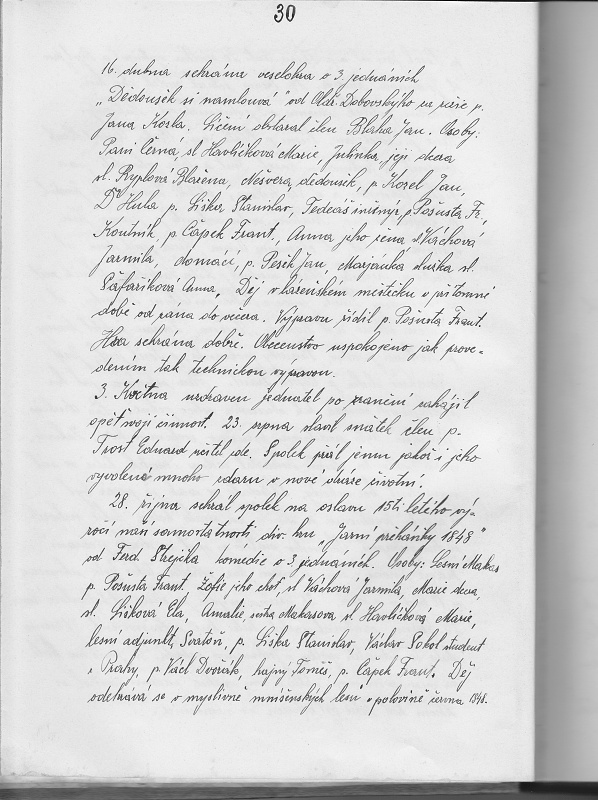 30
16. dubna sehrána veselohra o 3. jednáních
„Dědoušek si namlouvá" od Oldř. Dobovskýho za režie p.
Jana Kosla. Líčení obstaral člen Blaha Jan. Osoby:
Paní Černá, sl. Havlíčková Marie, Julinka, její dcera
sl. Ryplová Blažena, Nešvera, dědoušek, p. Kosel Jan,
Dr Hula p. Liška Stanislav, Tedeáš inženýr p. Pošusta Fr.,
Koutník, p. Čápek Frant., Anna jeho žena sl. Váchová
Jarmila, domácí, p. Pešek Jan, Marjánka služka sl.
Šafaříková Anna. Děj v lázeňském městečku v přítomné
době od rána do večera. Výpravu řídil p. Pošusta Frant.
Hra sehrána dobře. Obecenstvo uspokojeno jak prove-
dením tak technickou výpravou.
3. Května uzdraven jednatel po zranění zahájil
opět svoji činnost. 23. srpna slavil sňatek člen p.
Trost Eduard učitel zde. Spolek přál jemu jakož i jeho
vyvolené mnoho zdaru v nové dráze životní.
28. října sehrál spolek na oslavu 15ti letého vý-
ročí naší samostatnosti div. hru „Jarní přeháňky 1848"
od Ferd. Strejčka komedie o 3 jednáních. Osoby: Lesní Makas
p. Pošusta Frant. Žofie jeho choť, sl. Váchová Jarmila, Marie dcera,
sl. Lišková Ela, Amalie, sestra Makasova sl. Havlíčková Marie,
lesní adjunkt, Svatoň, p. Liška Stanislav, Václav Sokol student
z Prahy, p. Václ Dvořák, hajný Tomeš, p. Čápek Frant. Děj
odehrává se v myslivně mníšenských lesů v polovině června 1848.